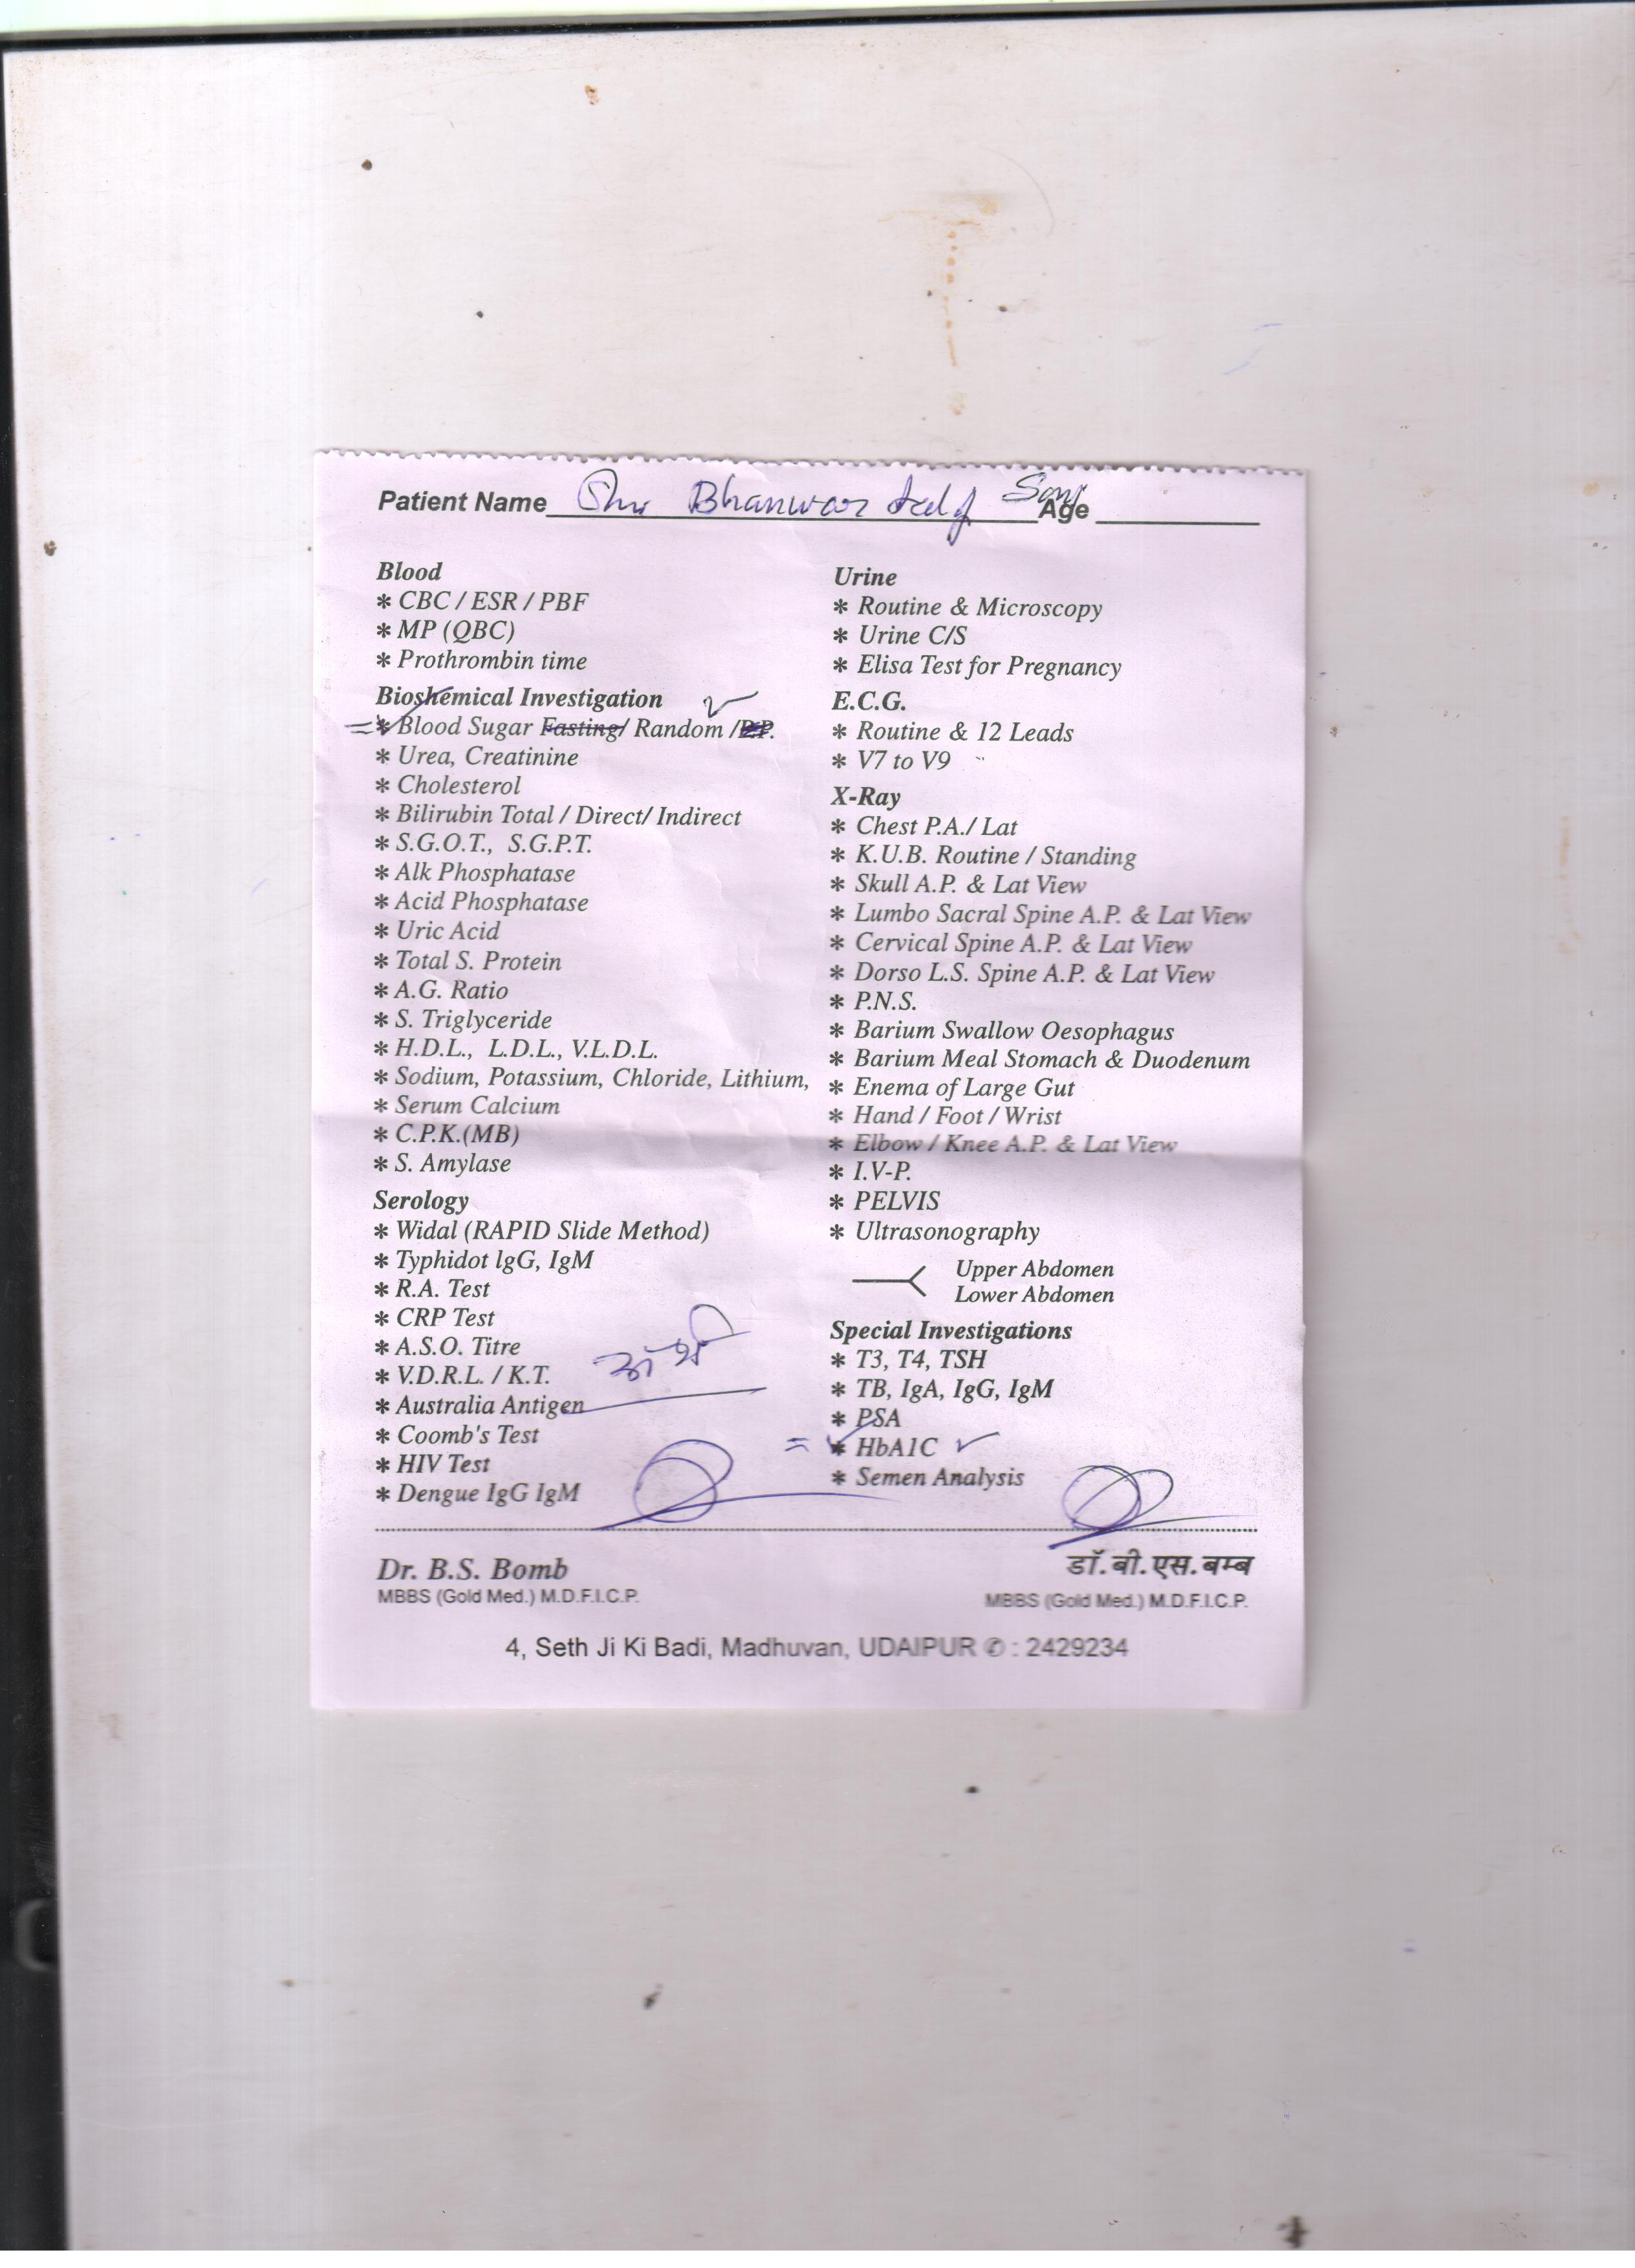 Patient Name Shri Bhanwar Lal ji Soni Age
Blood
* CBC / ESR / PBF
* MP (QBC)
* Prothrombin time
Bioshemical Investigation
* Blood Sugar Fasting/ Random /P.P.
* Urea, Creatinine
* Cholesterol
* Bilirubin Total / Direct/ Indirect
* S.G.O.T., S.G.P.T.
* Alk Phosphatase
* Acid Phosphatase
* Uric Acid
* Total S. Protein
* A.G. Ratio
* S. Triglyceride
* H.D.L., L.D.L., V.L.D.L.
* Sodium, Potassium, Chloride, Lithium,
* Serum Calcium
* C.P.K.(MB)
* S. Amylase
Serology
* Widal (RAPID Slide Method)
* Typhidot lgG, IgM
* R.A. Test
* CRP Test
* A.S.O. Titre
* V.D.R.L. / K.T.
* Australia Antigen
* Coomb's Test
* HIV Test
* Dengue IgG IgM
Urine
* Routine & Microscopy
* Urine C/S
* Elisa Test for Pregnancy
E.C.G.
* Routine & 12 Leads
* V7 to V9
X-Ray
* Chest P.A./ Lat
* K.U.B. Routine / Standing
* Skull A.P. & Lat View
* Lumbo Sacral Spine A.P. & Lat View
* Cervical Spine A.P. & Lat View
* Dorso L.S. Spine A.P. & Lat View
* P.N.S.
* Barium Swallow Oesophagus
* Barium Meal Stomach & Duodenum
* Enema of Large Gut
* Hand / Foot / Wrist
* Elbow / Knee A.P. & Lat View
* I.V-P.
* PELVIS
* Ultrasonography
Upper Abdomen
Lower Abdomen
Special Investigations
* T3, T4, TSH
* TB, IgA, IgG, IgM
* PSA
* HbA1C
* Semen Analysis
Dr. B.S. Bomb
MBBS (Gold Med.) M.D.F.I.C.P.
डॉ. बी. एस. बम्ब
MBBS (Gold Med.) M.D.F.I.C.P.
4, Seth Ji Ki Badi, Madhuvan, UDAIPUR ✆ : 2429234